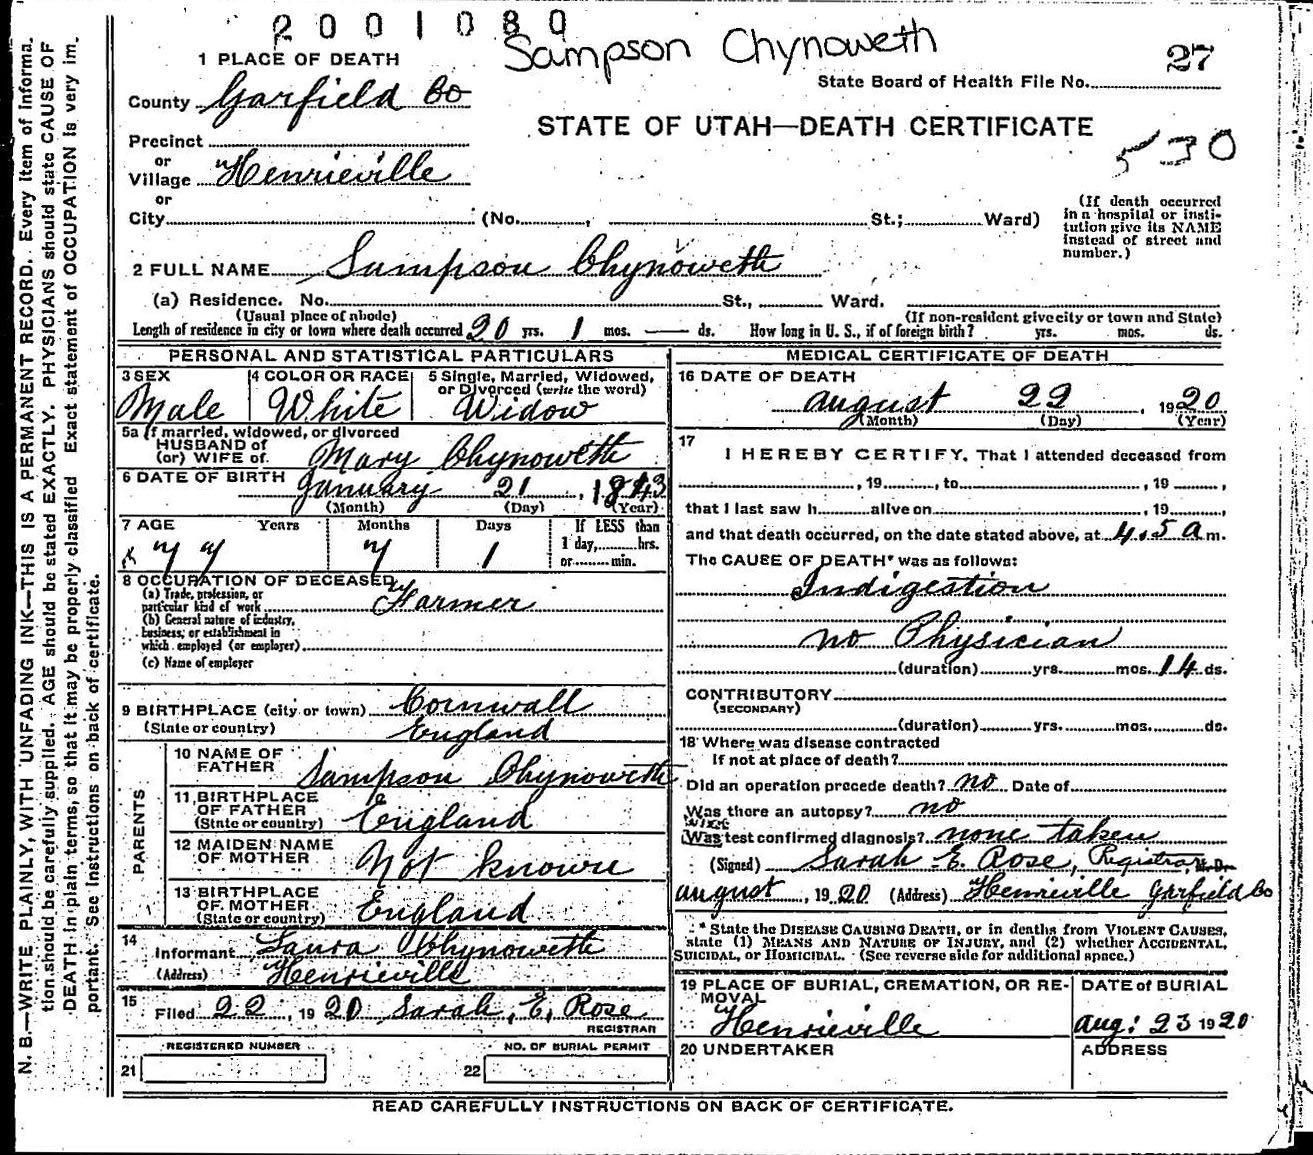 2001080
Sampson Chynoweth
27
1 PLACE OF DEATH
State Board of Health File No.
County Garfield Co
STATE OF UTAH—DEATH CERTIFICATE
530
Precinct
or
Village Henrieville
or
City (No. , St.; Ward)
(If death occurred
in a hospital or insti-
tution give its NAME
instead of street and
number.)
2 FULL NAME Sampson Chynoweth
(a) Residence. No. St., Ward.
(Usual place of abode) (If non-resident give city or town and State)
Length of residence in city or town where death occurred 20 yrs. 1 mos. — ds. How long in U. S., if of foreign birth? yrs. mos. ds.
PERSONAL AND STATISTICAL PARTICULARS
3 SEX
Male
4 COLOR OR RACE
White
5 Single, Married, Widowed,
or Divorced (write the word)
Widow
5a If married, widowed, or divorced
HUSBAND of
(or) WIFE of. Mary Chynoweth
6 DATE OF BIRTH January 21, 1843
(Month) (Day) (Year)
7 AGE Years Months Days If LESS than
77 7 1 1 day, hrs.
or min.
8 OCCUPATION OF DECEASED
(a) Trade, profession, or
particular kind of work Farmer
(b) General nature of industry,
business, or establishment in
which employed (or employer)
(c) Name of employer
9 BIRTHPLACE (city or town) Cornwall
(State or country) England
PARENTS
10 NAME OF
FATHER Sampson Chynoweth
11 BIRTHPLACE
OF FATHER England
(State or country)
12 MAIDEN NAME
OF MOTHER Not known
13 BIRTHPLACE
OF MOTHER England
(State or country)
14
Informant Laura Chynoweth
(Address) Henrieville
15
Filed 22, 1920 Sarah E. Rose
REGISTRAR
REGISTERED NUMBER
21
NO. OF BURIAL PERMIT
22
MEDICAL CERTIFICATE OF DEATH
16 DATE OF DEATH
august 22, 1920
(Month) (Day) (Year)
17
I HEREBY CERTIFY, That I attended deceased from
, 19 , to , 19 ,
that I last saw h alive on , 19 ,
and that death occurred, on the date stated above, at 4.5 a m.
The CAUSE OF DEATH* was as follows:
Indigestion
no Physician
(duration) yrs. mos. 14 ds.
CONTRIBUTORY
(SECONDARY)
(duration) yrs. mos. ds.
18 Where was disease contracted
If not at place of death?
Did an operation precede death? no Date of
Was there an autopsy? no
Was test confirmed diagnosis? none taken
(Signed) Sarah E. Rose, Registrar, M.D.
august, 1920 (Address) Henrieville Garfield Co
* State the DISEASE CAUSING DEATH, or in deaths from VIOLENT CAUSES,
state (1) MEANS AND NATURE OF INJURY, and (2) whether ACCIDENTAL,
SUICIDAL, or HOMICIDAL. (See reverse side for additional space.)
19 PLACE OF BURIAL, CREMATION, OR RE-
MOVAL
Henrieville
DATE of BURIAL
Aug: 23 1920
20 UNDERTAKER
ADDRESS
READ CAREFULLY INSTRUCTIONS ON BACK OF CERTIFICATE.
N. B.—WRITE PLAINLY, WITH UNFADING INK—THIS IS A PERMANENT RECORD. Every item of Informa-
tion should be carefully supplied. AGE should be stated EXACTLY. PHYSICIANS should state CAUSE OF
DEATH in plain terms, so that it may be properly classified Exact statement of OCCUPATION is very im-
portant. See instructions on back of certificate.